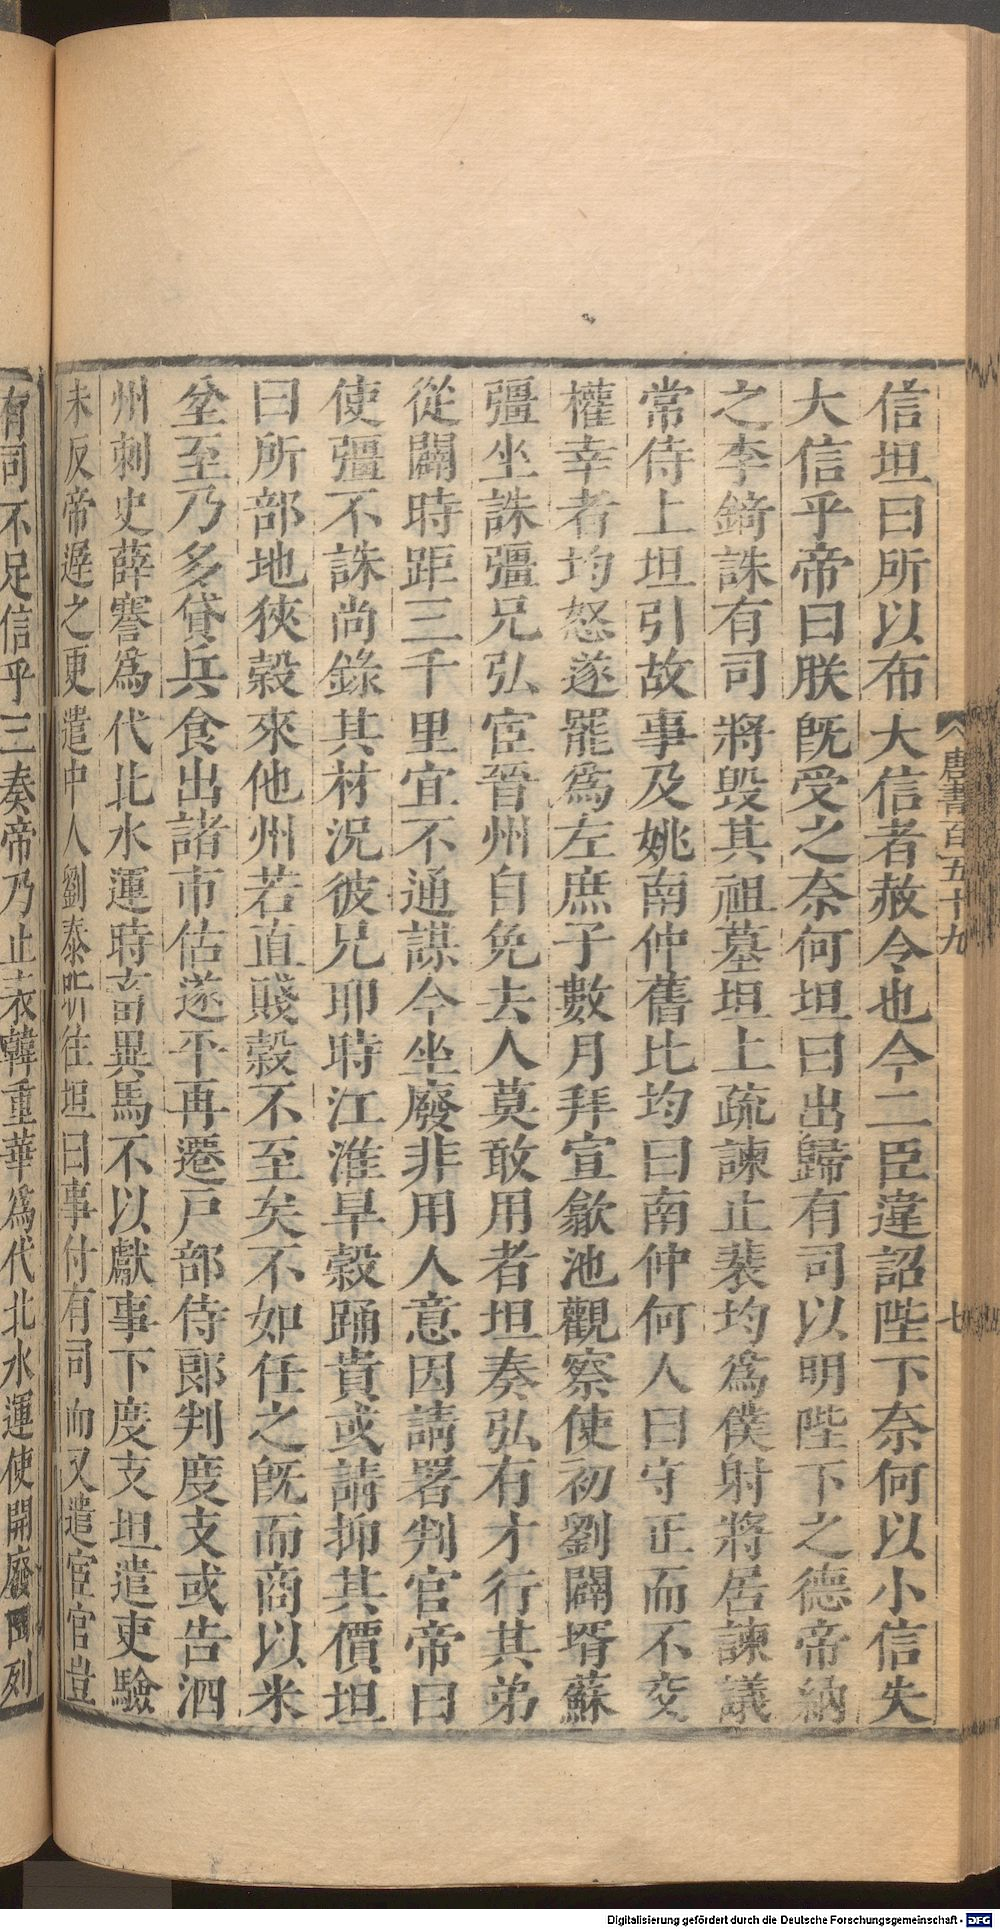 唐書百五十九
七
信坦曰所以布大信者赦令也今二臣違詔陛下奈何以小信失
大信乎帝曰朕旣受之奈何坦曰出歸有司以明陛下之德帝納
之李錡誅有司將毀其祖墓坦上疏諫止裴均爲僕射將居諫議
常侍上坦引故事及姚南仲舊比均曰南仲何人曰守正而不交
權幸者均怒遂罷爲左庶子數月拜宣歙池觀察使初劉闢壻蘇
彊坐誅彊兄弘宦晉州自免去人莫敢用者坦奏弘有才行其弟
從闢時距三千里宜不通謀今坐廢非用人意因請署判官帝曰
使彊不誅尚錄其材況彼兄耶時江淮旱穀踊貴或請抑其價坦
曰所部地狹穀來他州若直賤穀不至矣不如任之旣而商以米
坌至乃多貸兵食出諸市估遂平再遷戸部侍郎判度支或告泗
州刺史薛謇爲代北水運時畜異馬不以獻事下度支坦遣吏驗
未反帝遲之更遣中人劉泰昕往坦曰事付有司而又遣宦官豈
有司不足信乎三奏帝乃止表韓重華爲代北水運使開廢田列
Digitalisierung gefördert durch die Deutsche Forschungsgemeinschaft - DFG